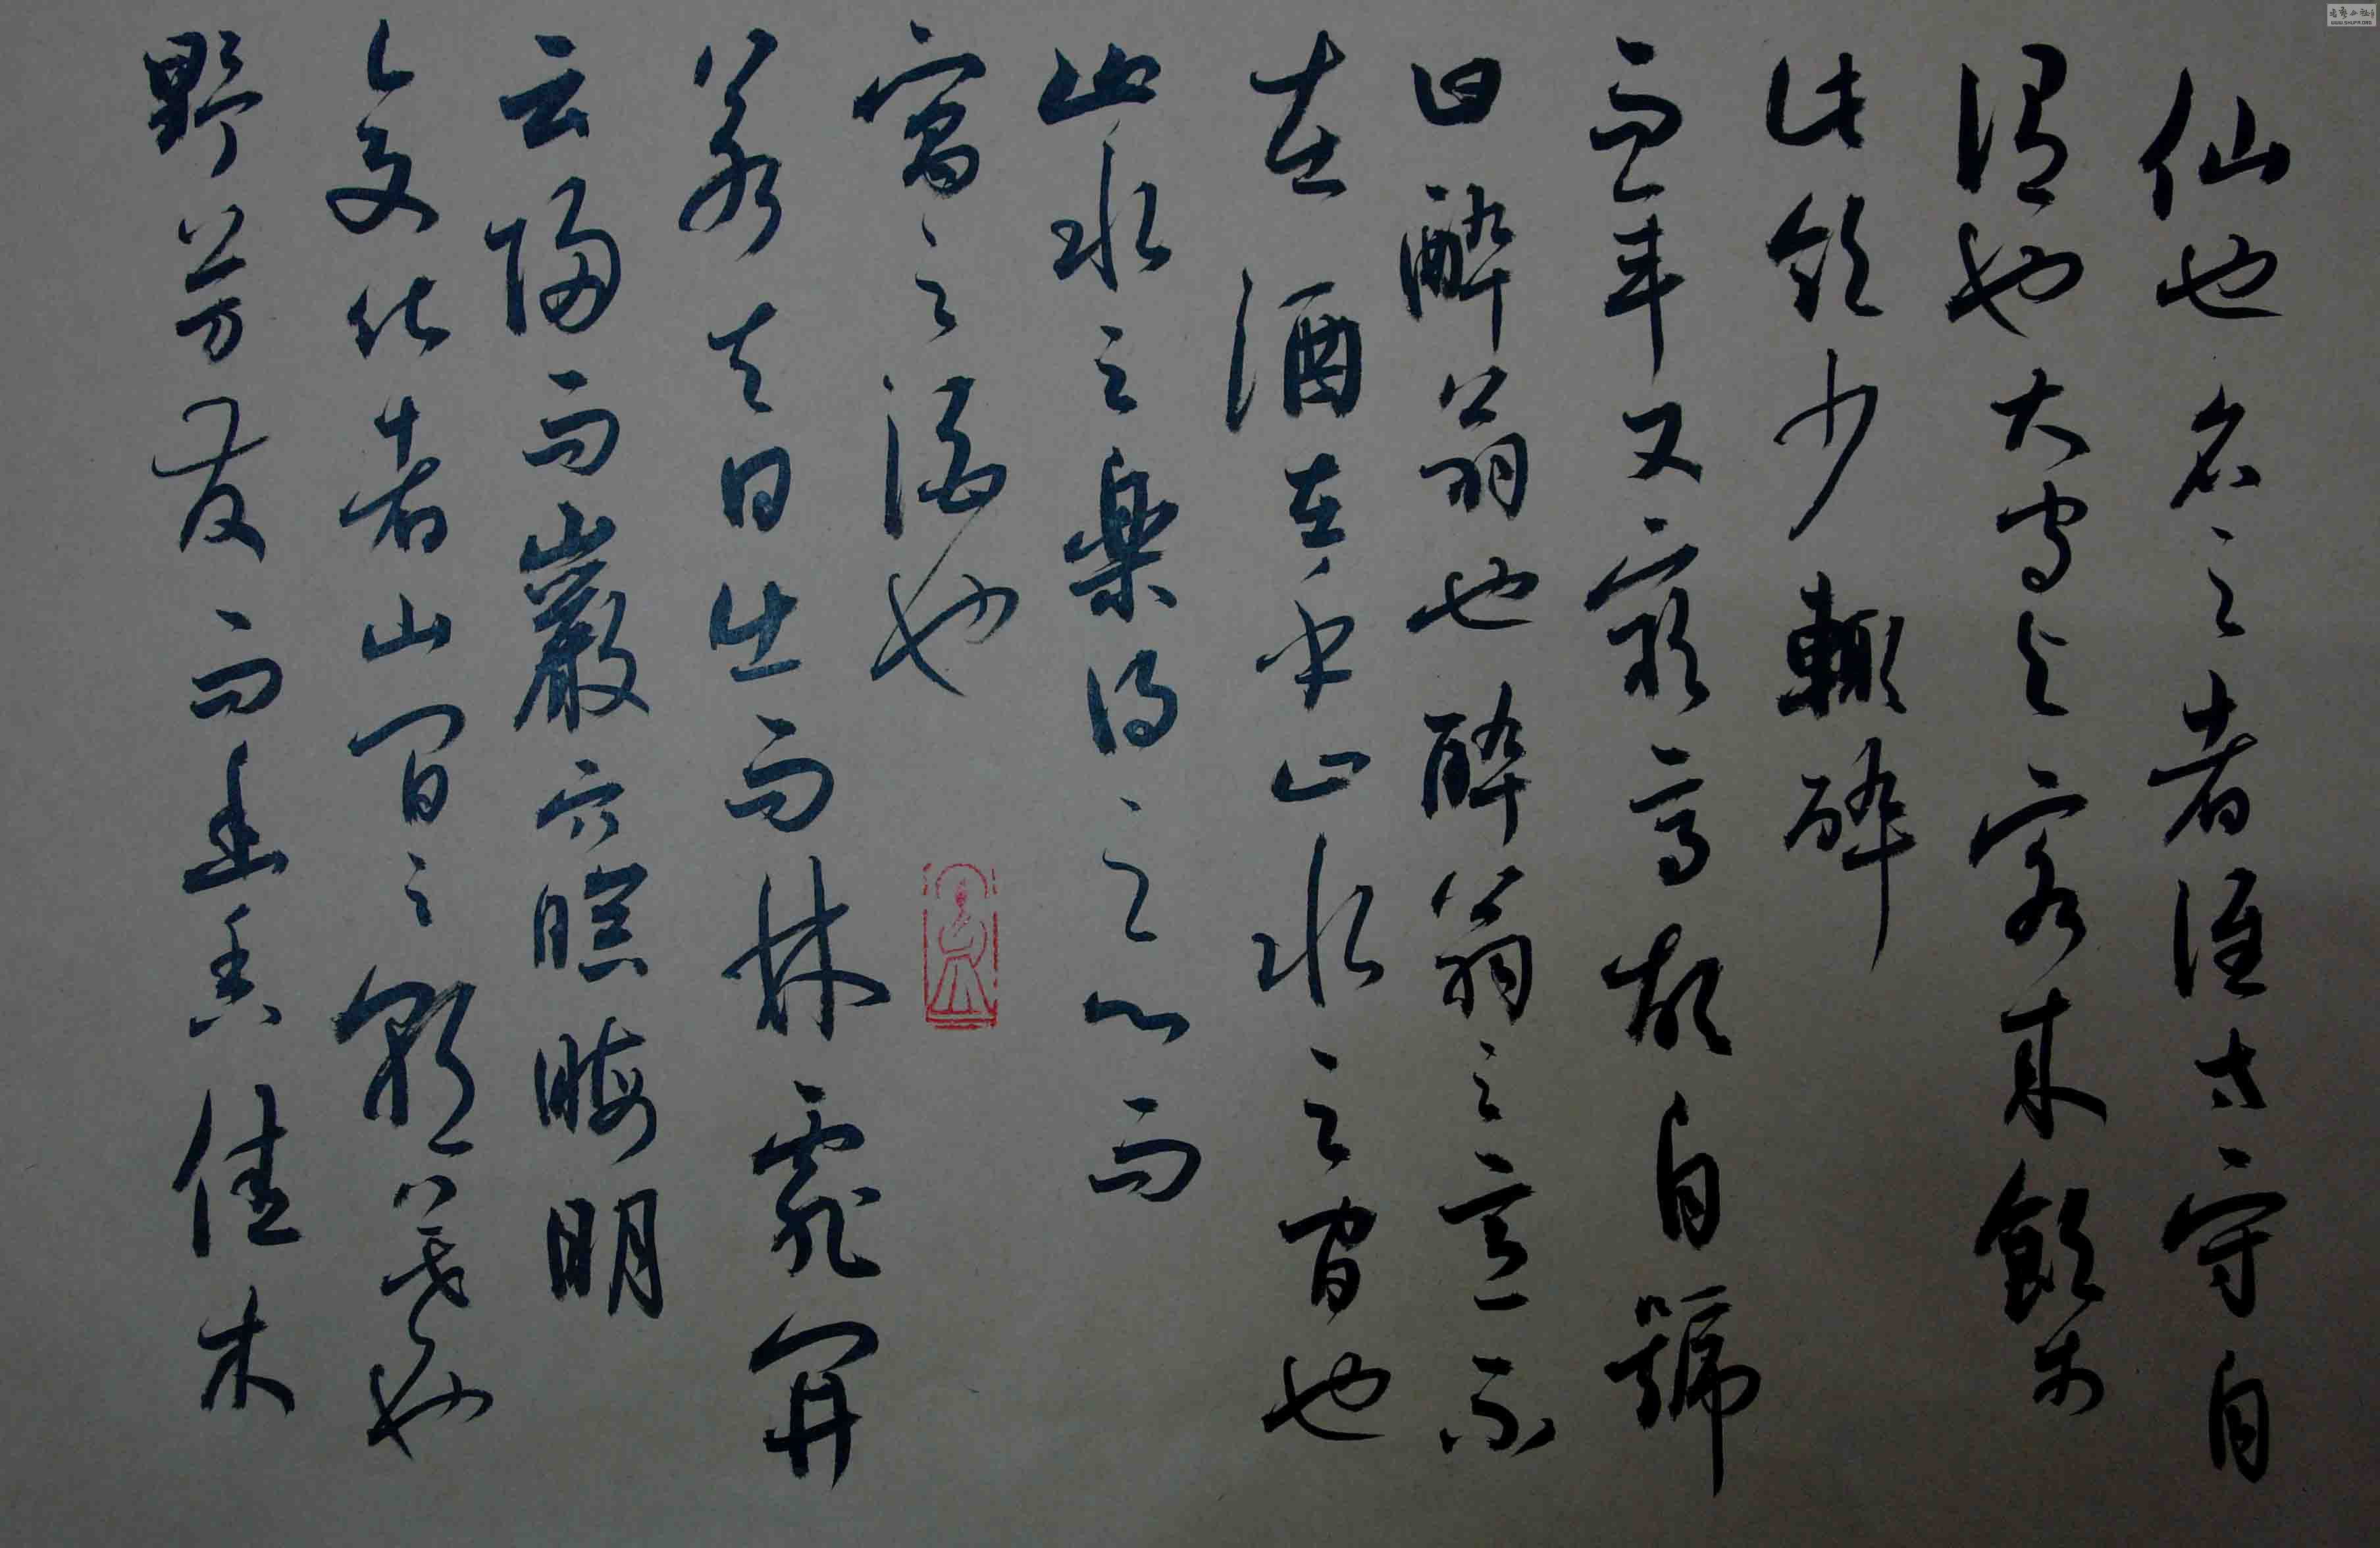 仙也名之者谁太守自
谓也太守与客来饮於
此饮少輙醉
而年又最高故自號
曰醉翁也醉翁之意不
在酒在乎山水之间也
山水之楽得之心而
寓之酒也
若夫日出而林霏開
云归而巖穴暝晦明
变化者山间之朝暮也
野芳发而幽香佳木
WWW.SHUFA.ORG